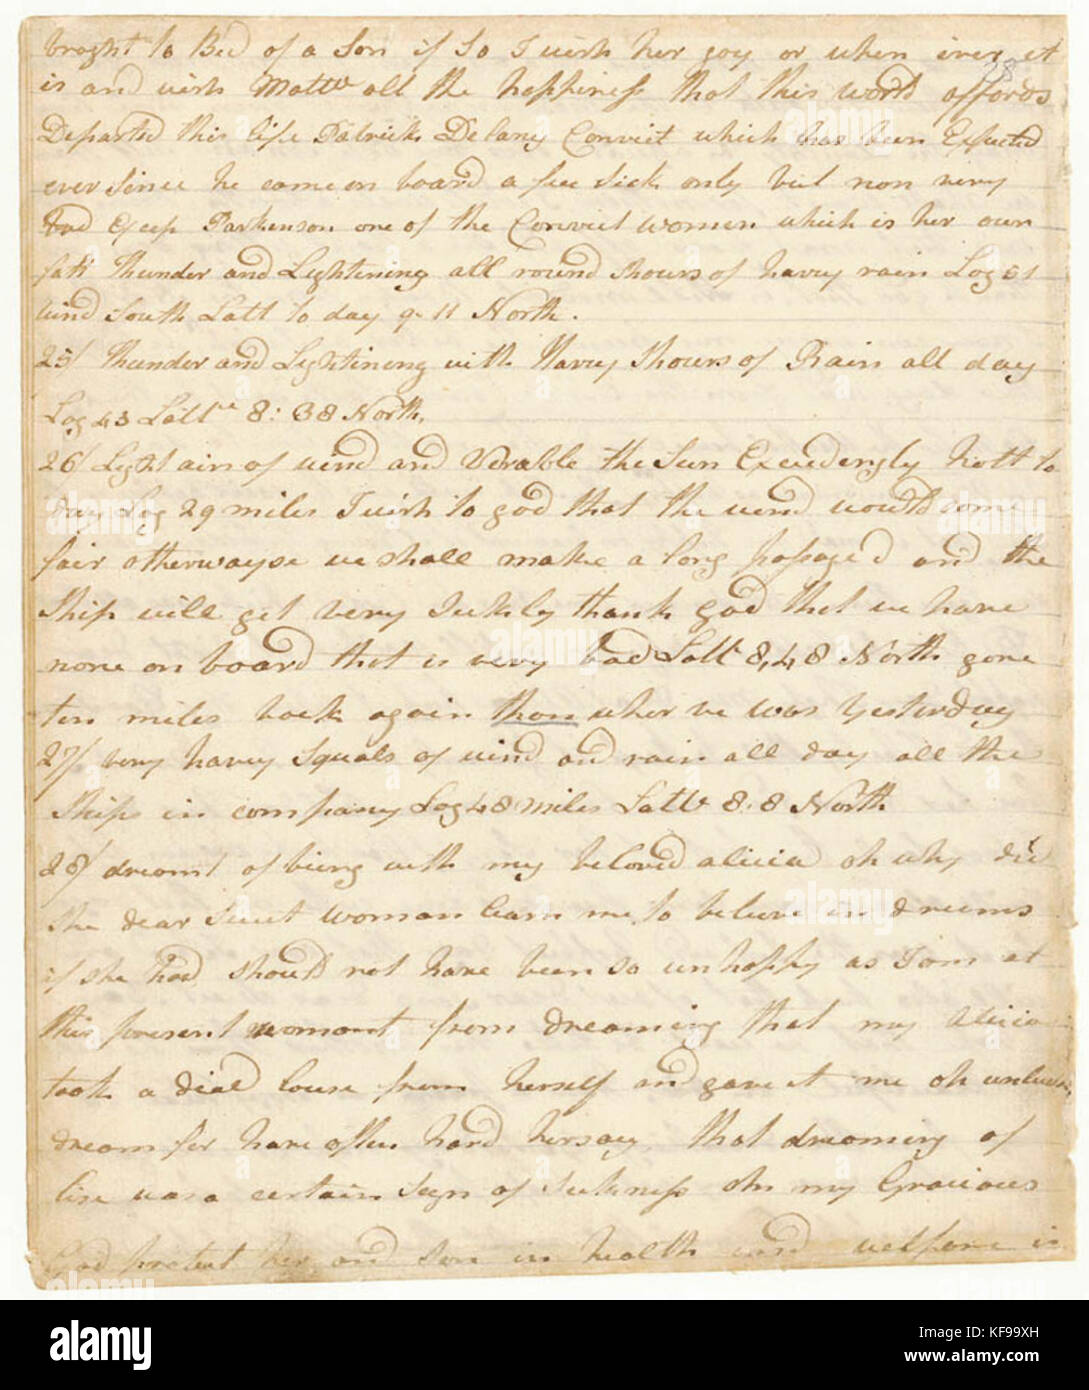 broght to Bed of a Son if So I wish her joy or when ever it
is and wish Mattw all the happiness that this world affords
Departed this life Patrick Delany Convict which has been Expected
ever Since he came on board a few Sick only but non very
bad Excep Parkenson one of the Convict women which is her own
falt Thunder and Lightening all round Shours of havey rain Log 51
wind South Latt to day 9-11 North.
25/ Thunder and Lightining with Havey Shours of Rain all day
Log 43 Lattde 8:38 North.
26/ Light airs of wind and Verable the Sun Exceedengly hott to
day Log 29 miles I wish to god that the wend would come
fair otherwayse we shall make a long passage and the
Ship will get very Sickly thank god that we have
none on board that is very bad Latt 8,48 North gone
ten miles back again than wher we was yesterday
27/ very havey Squals of wind and rain all day all the
Ships in company Log 48 miles Latt 8.8 North
28/ dreamt of being with my beloved alicia oh why did
She dear Sweet woman learn me to beleive in dreams
if she had Should not have been so unhappy as I am at
this present momant from dreaming that my Alicia
took a dead louse from herself and gave it me oh
dream for have often hard her say that dreaming of
lise was a certain Sign of Sickness oh my Gracious
God protect her and Son in health and welfare is
alamy
Image ID: KF99XH
www.alamy.com